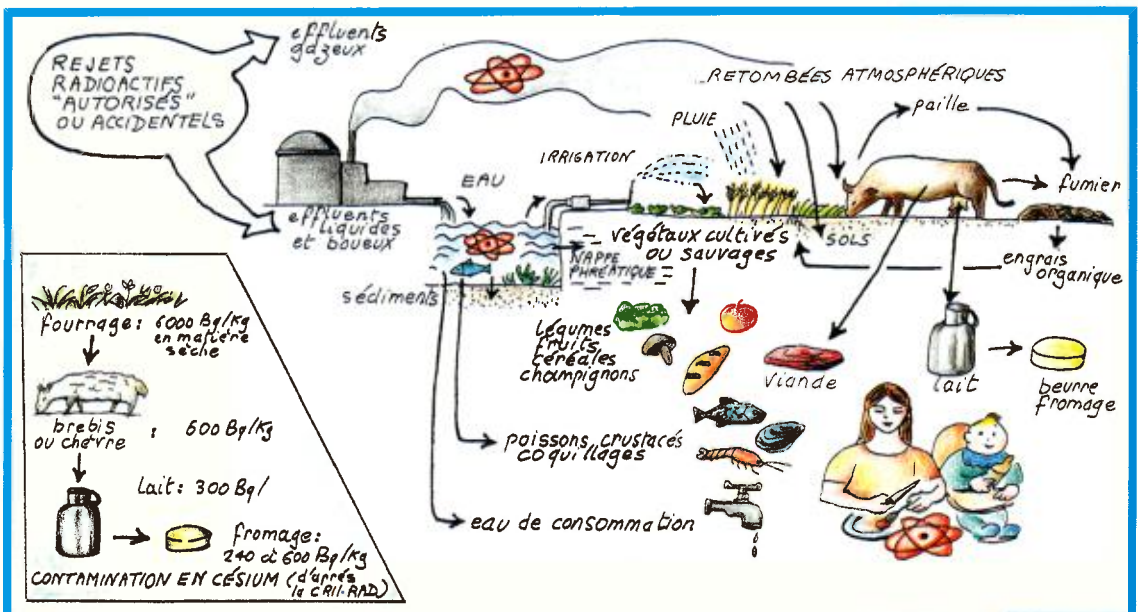 REJETS
RADIOACTIFS
"AUTORISÉS"
OU ACCIDENTELS
effluents
gazeux
effluents
liquides
et boueux
EAU
IRRIGATION
PLUIE
RETOMBÉES ATMOSPHÉRIQUES
paille
fumier
engrais
organique
SOLS
végétaux cultivés
ou sauvages
NAPPE
PHRÉATIQUE
sédiments
légumes
fruits
céréales
champignons
viande
lait
beurre
fromage
poissons crustacés
coquillages
eau de consommation
fourrage: 6000 Bq/kg
en matière
sèche
brebis
ou chèvre : 600 Bq/kg
lait: 300 Bq/
fromage:
240 à 600 Bq/kg
CONTAMINATION EN CÉSIUM (d'après
la CRII-RAD)